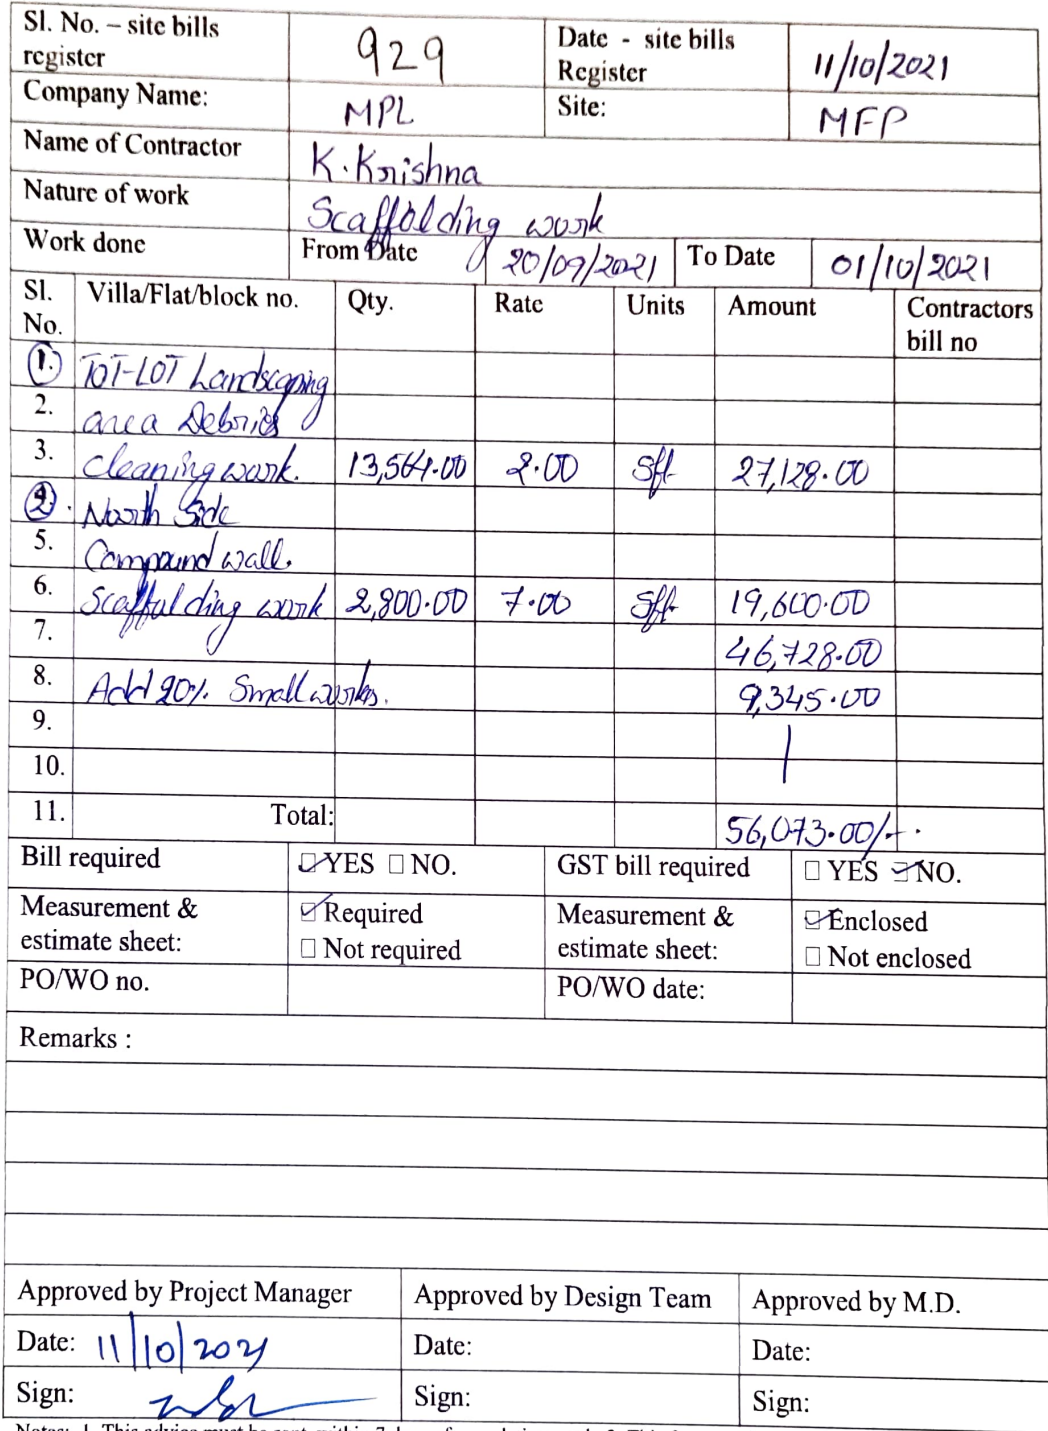 Sl. No. – site bills register 929 Date - site bills Register 11/10/2021
Company Name: MPL Site: MFP
Name of Contractor K. Krishna
Nature of work Scaffolding work
Work done From Date 20/09/2021 To Date 01/10/2021
Sl. No. Villa/Flat/block no. Qty. Rate Units Amount Contractors bill no
1. TOT-LOT Landscaping
2. area Debries
3. cleaning work. 13,564.00 2.00 Sft 27,128.00
2. North Side
5. Compound wall.
6. Scaffolding work 2,800.00 7.00 Sft 19,600.00
7. 46,728.00
8. Add 20% Small works. 9,345.00
9.
10.
11. Total: 56,073.00/-
Bill required YES NO. GST bill required YES NO.
Measurement & estimate sheet: Required Not required Measurement & estimate sheet: Enclosed Not enclosed
PO/WO no. PO/WO date:
Remarks :
Approved by Project Manager Approved by Design Team Approved by M.D.
Date: 11/10/2021 Date: Date:
Sign: Sign: Sign: